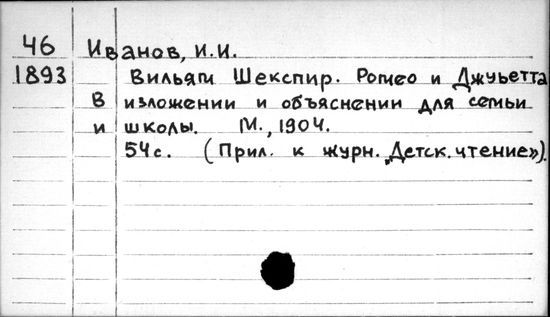 46 Иванов, И.И.
1893 Вильям Шекспир. Ромео и Джульетта
в изложении и объяснении для семьи
и школы. М., 1904.
54с. (Прил. к журн. „Детск. чтение»).